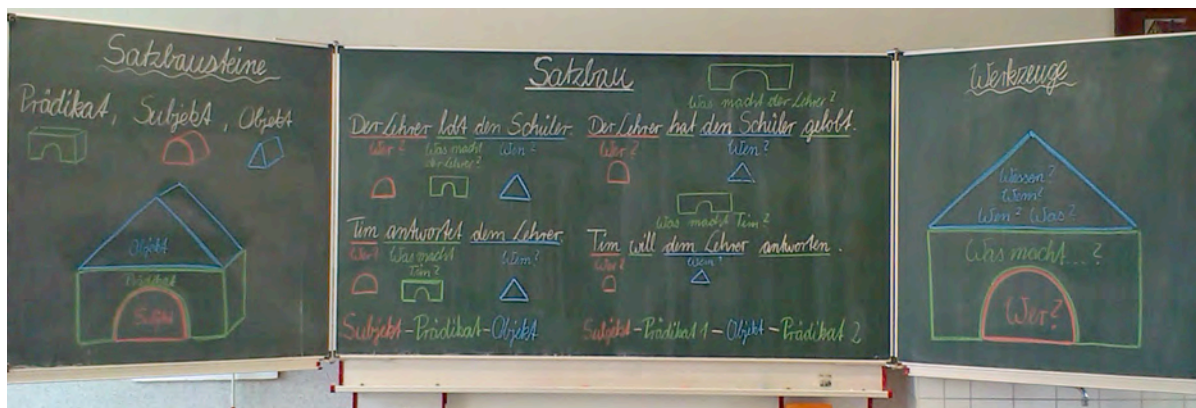 Satzbausteine
Prädikat, Subjekt, Objekt
Objekt
Prädikat
Subjekt
Satzbau
Was macht der Lehrer?
Der Lehrer lobt den Schüler.
Wer? Was macht der Lehrer? Wen?
Der Lehrer hat den Schüler gelobt.
Wer? Wen?
Tim antwortet dem Lehrer.
Wer? Was macht Tim? Wem?
Was macht Tim?
Tim will dem Lehrer antworten.
Wer? Wem?
Subjekt-Prädikat-Objekt
Subjekt-Prädikat 1-Objekt-Prädikat 2
Werkzeuge
Wessen?
Wem?
Wen? Was?
Was macht...?
Wer?